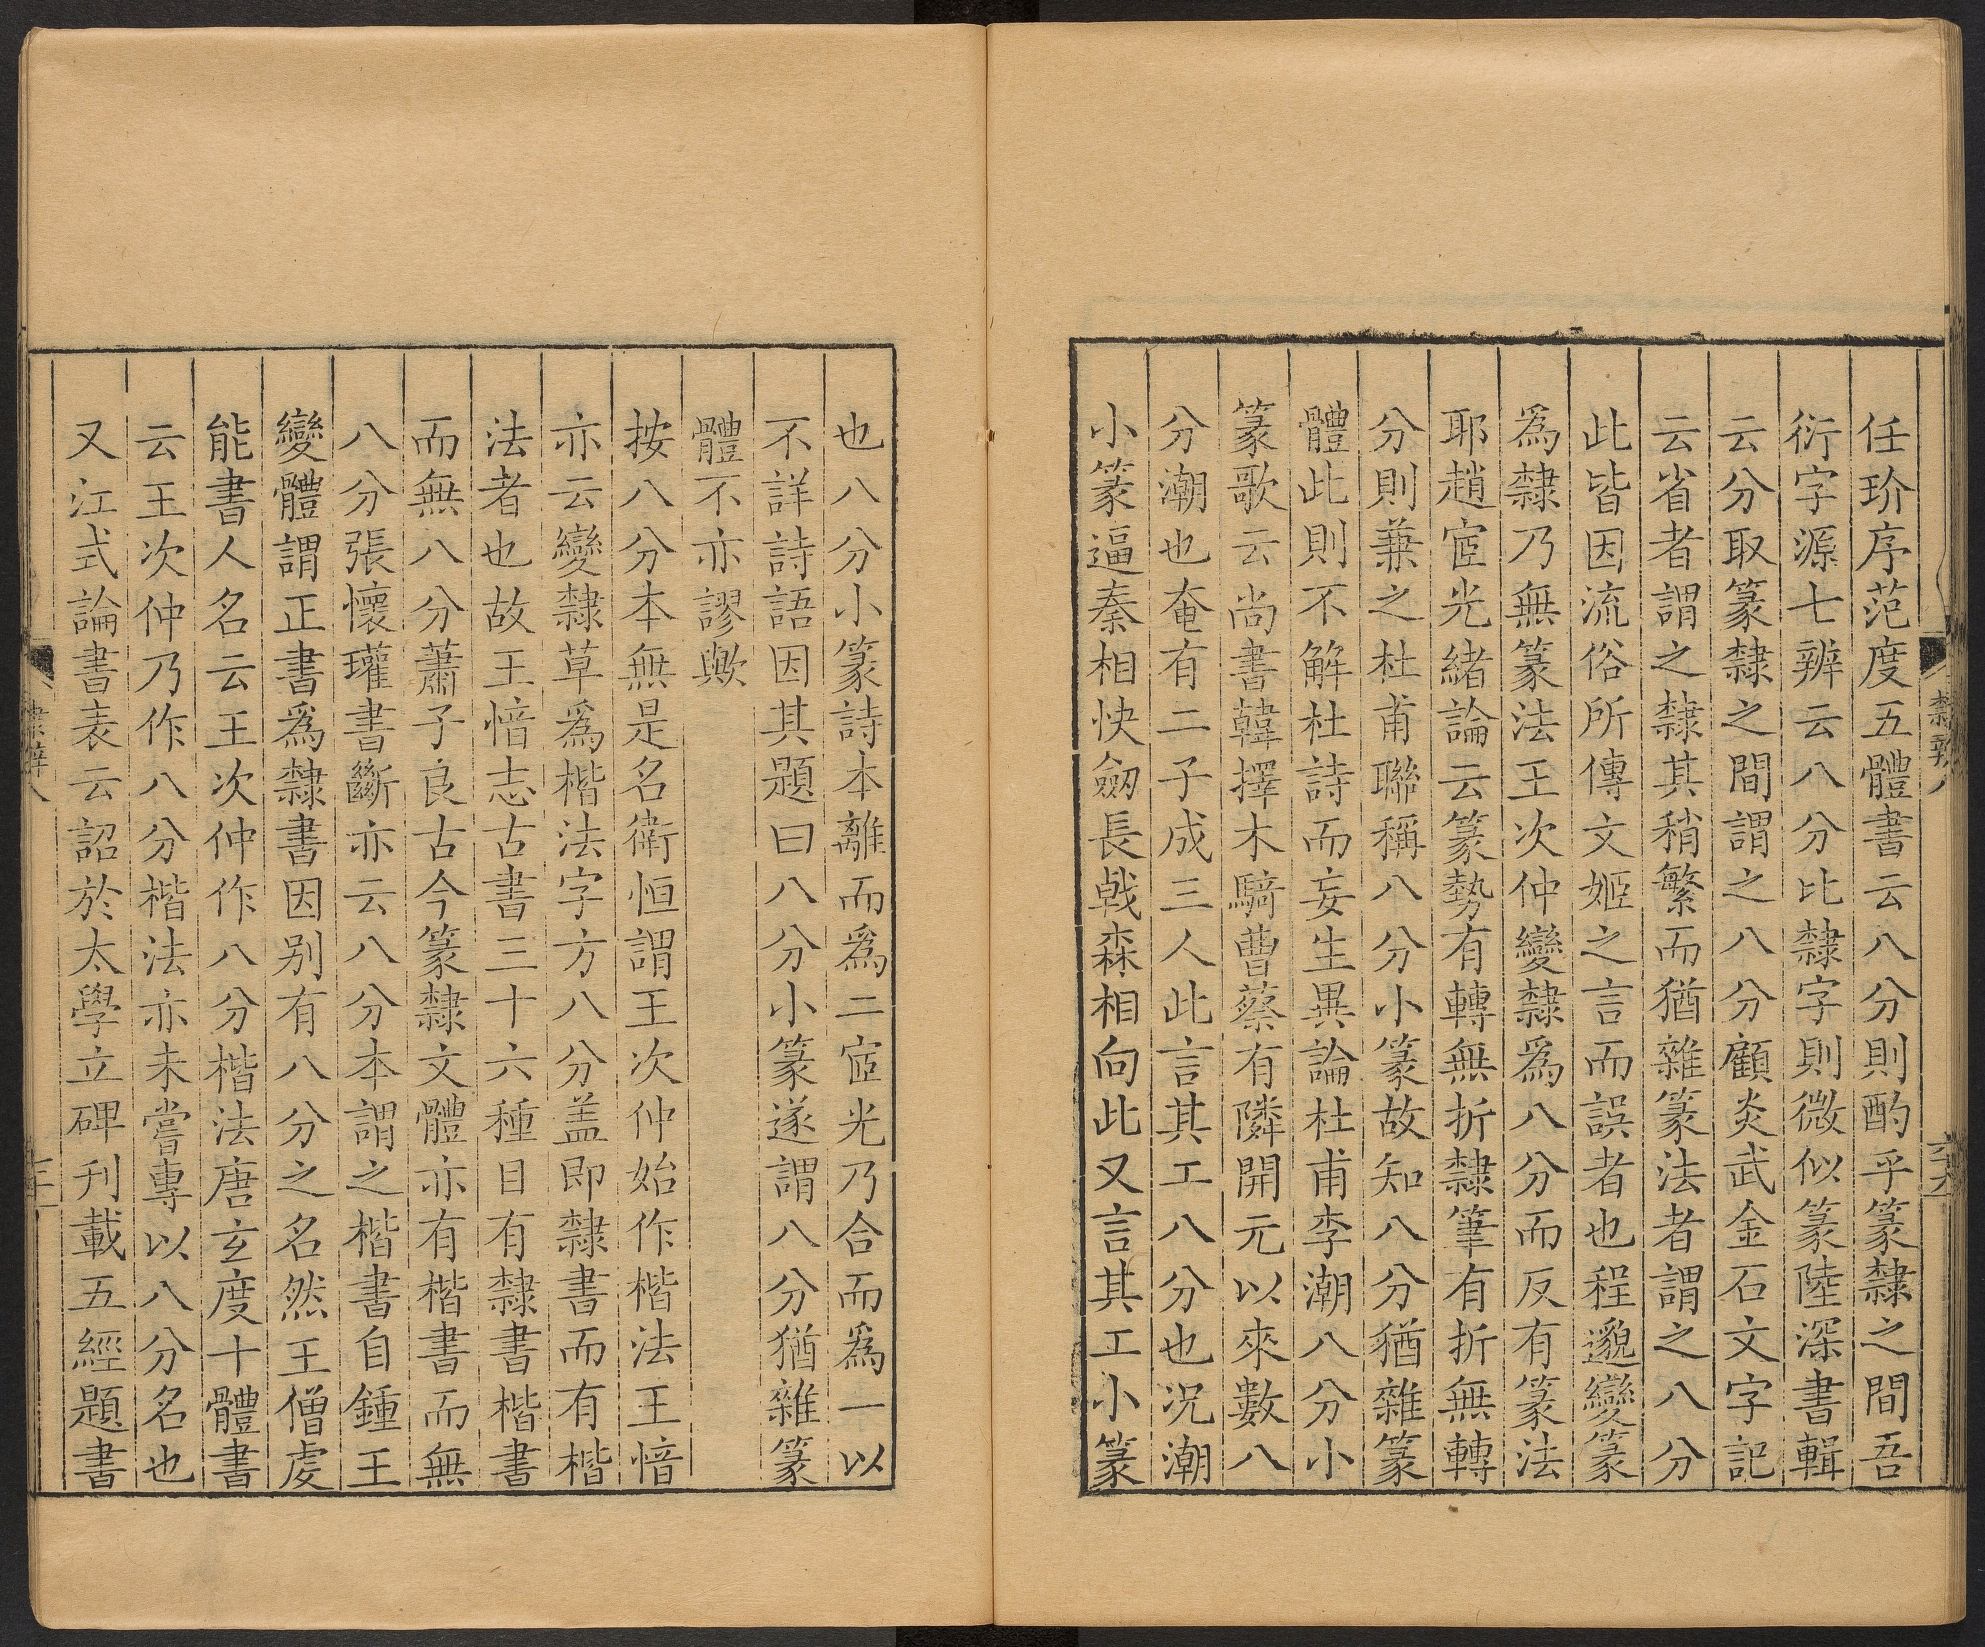 任玠序范度五體書云八分則酌乎篆隸之間吾
衍字源七辨云八分比隸字則微似篆陸深書輯
云分取篆隸之間謂之八分顧炎武金石文字記
云省者謂之隸其稍繁而猶雜篆法者謂之八分
此皆因流俗所傳文姬之言而誤者也程邈變篆
爲隸乃無篆法王次仲變隸爲八分而反有篆法
耶趙宧光緒論云篆勢有轉無折隸筆有折無轉
分則兼之杜甫聯稱八分小篆故知八分猶雜篆
體此則不解杜詩而妄生異論杜甫李潮八分小
篆歌云尚書韓擇木騎曹蔡有隣開元以來數八
分潮也奄有二子成三人此言其工八分也况潮
小篆逼秦相快劒長戟森相向此又言其工小篆
也八分小篆詩本離而爲二宧光乃合而爲一以
不詳詩語因其題曰八分小篆遂謂八分猶雜篆
體不亦謬歟
按八分本無是名衛恒謂王次仲始作楷法王愔
亦云變隸草爲楷法字方八分盖即隸書而有楷
法者也故王愔志古書三十六種目有隸書楷書
而無八分蕭子良古今篆隸文體亦有楷書而無
八分張懷瓘書斷亦云八分本謂之楷書自鍾王
變體謂正書爲隸書因别有八分之名然王僧虔
能書人名云王次仲作八分楷法唐玄度十體書
云王次仲乃作八分楷法亦未嘗專以八分名也
又江式論書表云詔於太學立碑刋載五經題書
隸辨八